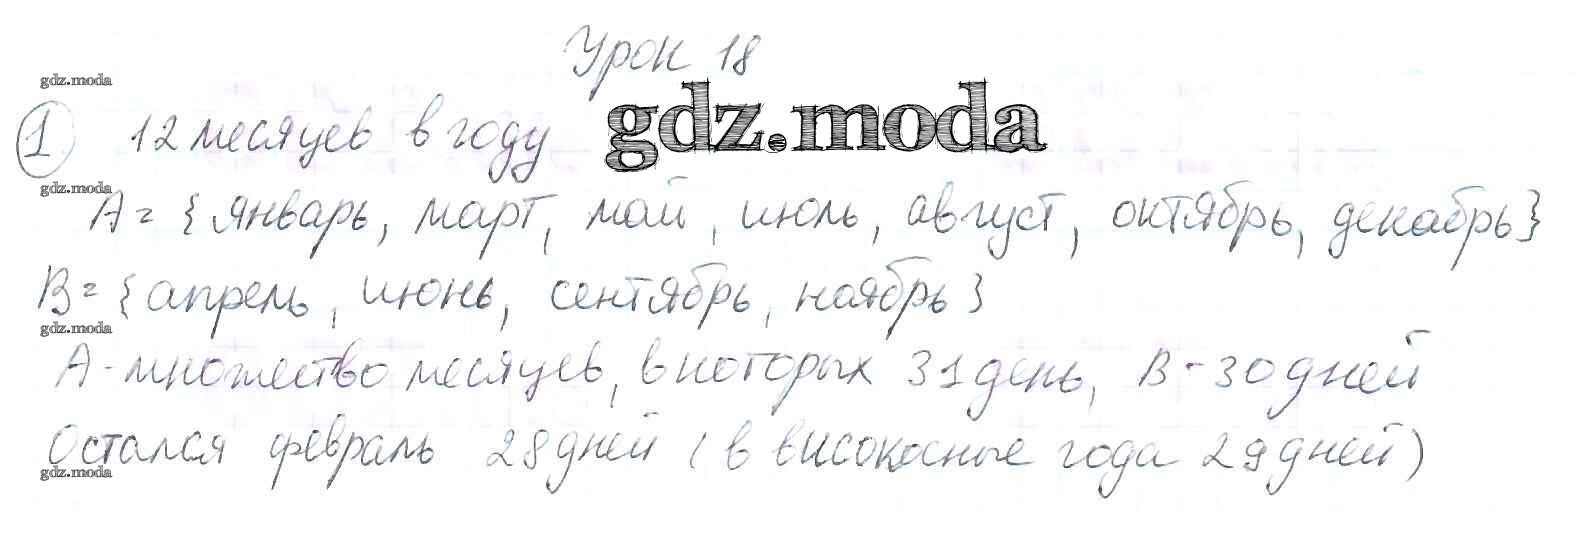 Урок 18
gdz.moda
gdz.moda
1 12 месяцев в году
gdz.moda
A = {январь, март, май, июль, август, октябрь, декабрь}
B = {апрель, июнь, сентябрь, ноябрь}
gdz.moda
A - множество месяцев, в которых 31 день, B - 30 дней
Остался февраль 28 дней (в високосные года 29 дней)
gdz.moda